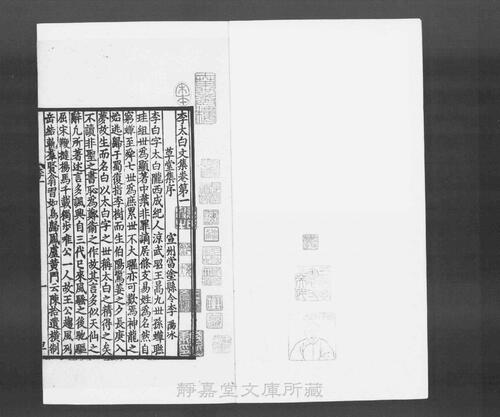 李太白文集卷第一
草堂集序
宣州當塗縣令李陽冰
李白字太白隴西成紀人涼武昭王暠九世孫蟬聯
珪組世為顯著中葉非罪謫居條支易姓為名然自
窮蟬至舜七世為庶累世不大曜亦可歎焉神龍之
始逃歸于蜀復指李樹而生伯陽驚姜之夕長庚入
夢故生而名白以太白字之世稱太白之精得之矣
不讀非聖之書恥為鄭衛之作故其言多似天仙之
辭凡所著述言多諷興自三代已來風騷之後馳驅
屈宋鞭撻揚馬千載獨步唯公一人故王公趨風列
岳結軌群賢翕習如鳥歸鳳盧黃門云陳拾遺橫制
靜嘉堂文庫所藏